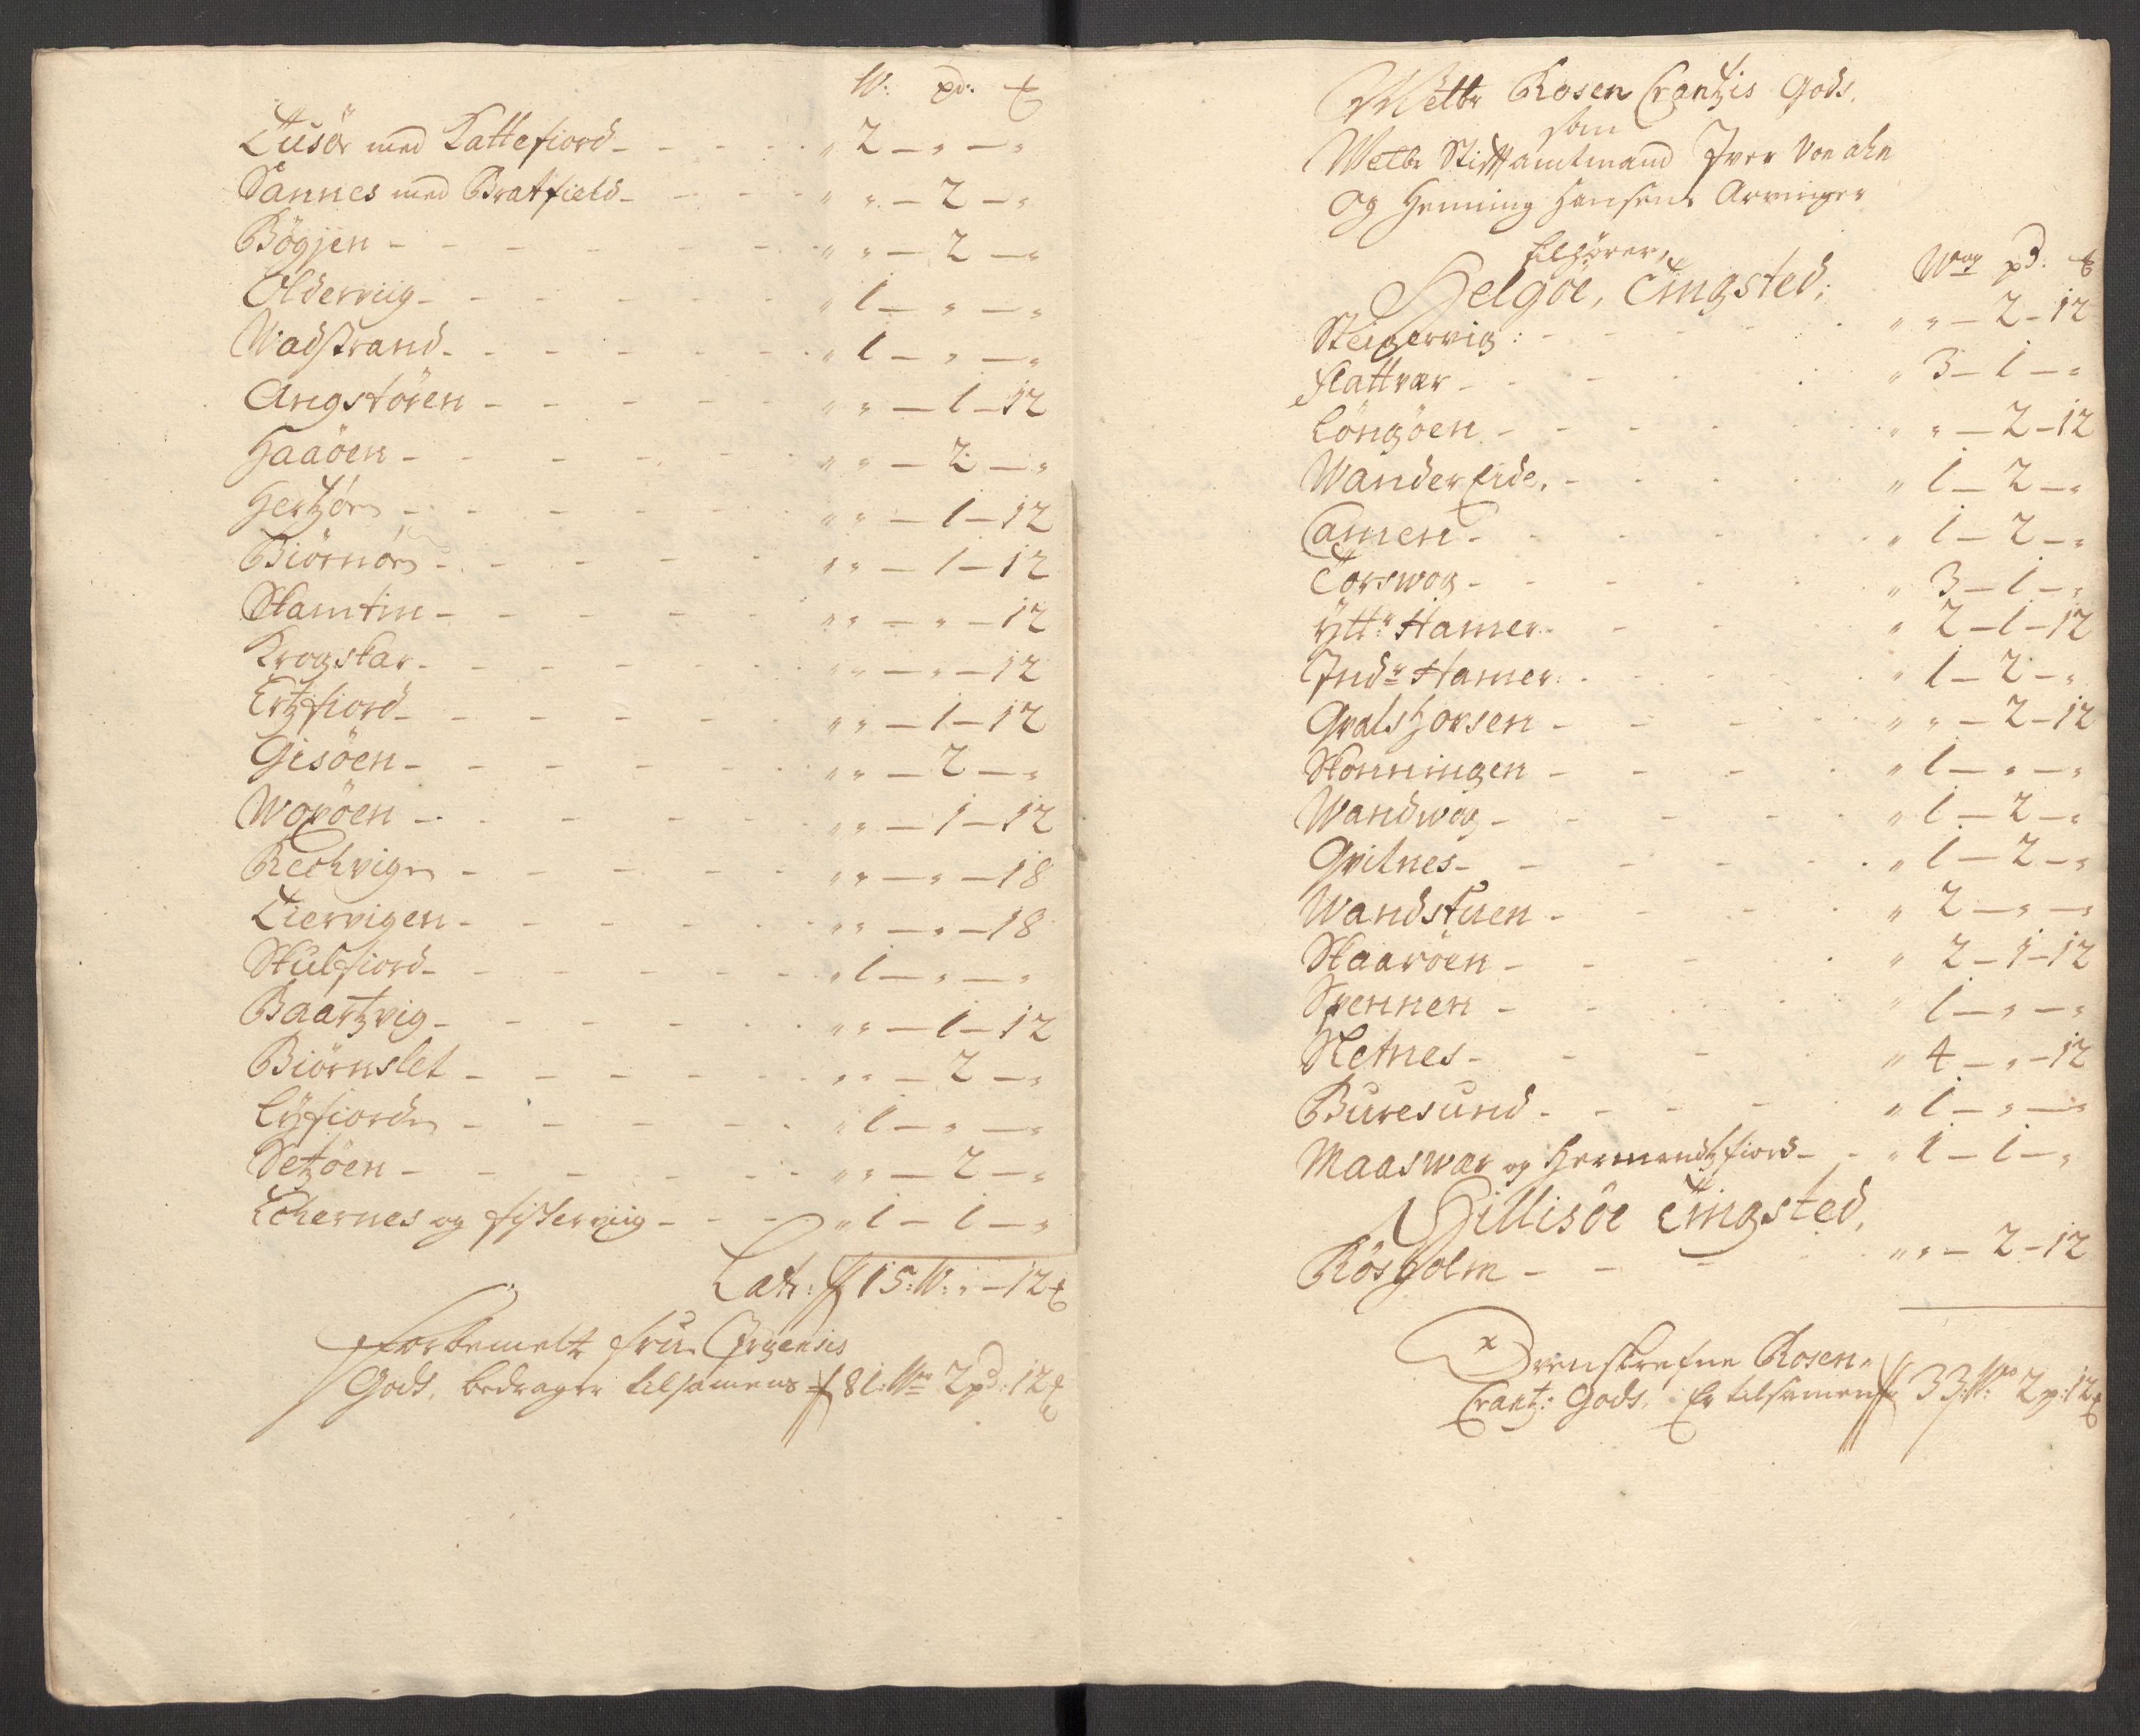 W: pd: ℔
Tusör med Kattefiord - - - „ 2 — „ — „
Sannes med Bratfield - - - „ „ — 2 — „
Bögjen - - - „ „ — 2 — „
Olderviig - - - „ 1 — „ — „
Wadstrand - - - „ 1 — „ — „
Angstören - - - „ „ — 1 — 12
Haaöen - - - „ „ — 2 — „
Hertzörn - - - „ „ — 1 — 12
Biörnörn - - - „ „ — 1 — 12
Skamtin - - - „ „ — „ — 12
Krogskar - - - „ „ — „ — 12
Ertzfiord - - - „ „ — 1 — 12
Gisöen - - - „ „ — 2 — „
Woxöen - - - „ „ — 1 — 12
Rechvigen - - - „ „ — „ — 18
Tiervigen - - - „ „ — „ — 18
Skulfiord - - - „ 1 — „ — „
Baartzvig - - - „ „ — 1 — 12
Biörnslet - - - „ „ — 2 — „
Lyfiorden - - - „ 1 — „ — „
Setzöen - - - „ „ — 2 — „
Lchernes og fisterviig - - - „ 1 — 1 — „
Latr: 15: W: „ — 12 ℔
Forbemelte fru Jrgensis
Gods, bedrager tilsamens 81: W 2 pd: 12 ℔
Welbr Rosen Crantzis Gods,
som
Welbr Stiftamtmand Iver Von ahn
og Henning Hansens Arvinger
tilhörer,
Helgöe, Tingsted; Wog pd: ℔
Skeigervig: - - - „ „ — 2 — 12
flattvær - - - „ 3 — 1 — „
Löngöen - - - „ „ — 2 — 12
Wander Eide, - - - „ 1 — 2 — „
Camen - - - „ 1 — 2 — „
Torswog - - - „ 3 — 1 — „
Yttr: Hamer - - - „ 2 — 1 — 12
Indr Hamer - - - „ 1 — 2 — „
Gvalshorsen - - - „ „ — 2 — 12
Skonningen - - - „ 1 — „ — „
Wandwog - - - „ 1 — 2 — „
Gvitnes - - - „ 1 — 2 — „
Wandstuen - - - „ 2 — „ — „
Skaaröen - - - „ 2 — 1 — 12
Spennen - - - „ 1 — „ — „
Sletnes - - - „ 4 — „ — 12
Buresund - - - „ 1 — „ — „
Maaswær og Hermandtzfiord - - „ 1 — 1 — „
Hillisöe Tingsted,
Rösholm - - - „ „ — 2 — 12
Ovenskrefne Rosen-
Crantz: Gods, Er tilsamen 33: W: 2 p: 12 ℔